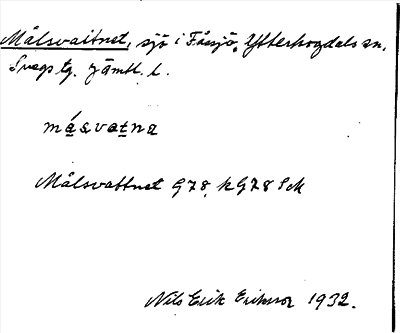 Målsvattnet, sjö i Fåssjö, Ytterhogdals sn,
Svegs tg. Jämtl. l.
måsvatna
Målsvattnet G78, k G78 SM
Nils Erik Eriksson 1932.